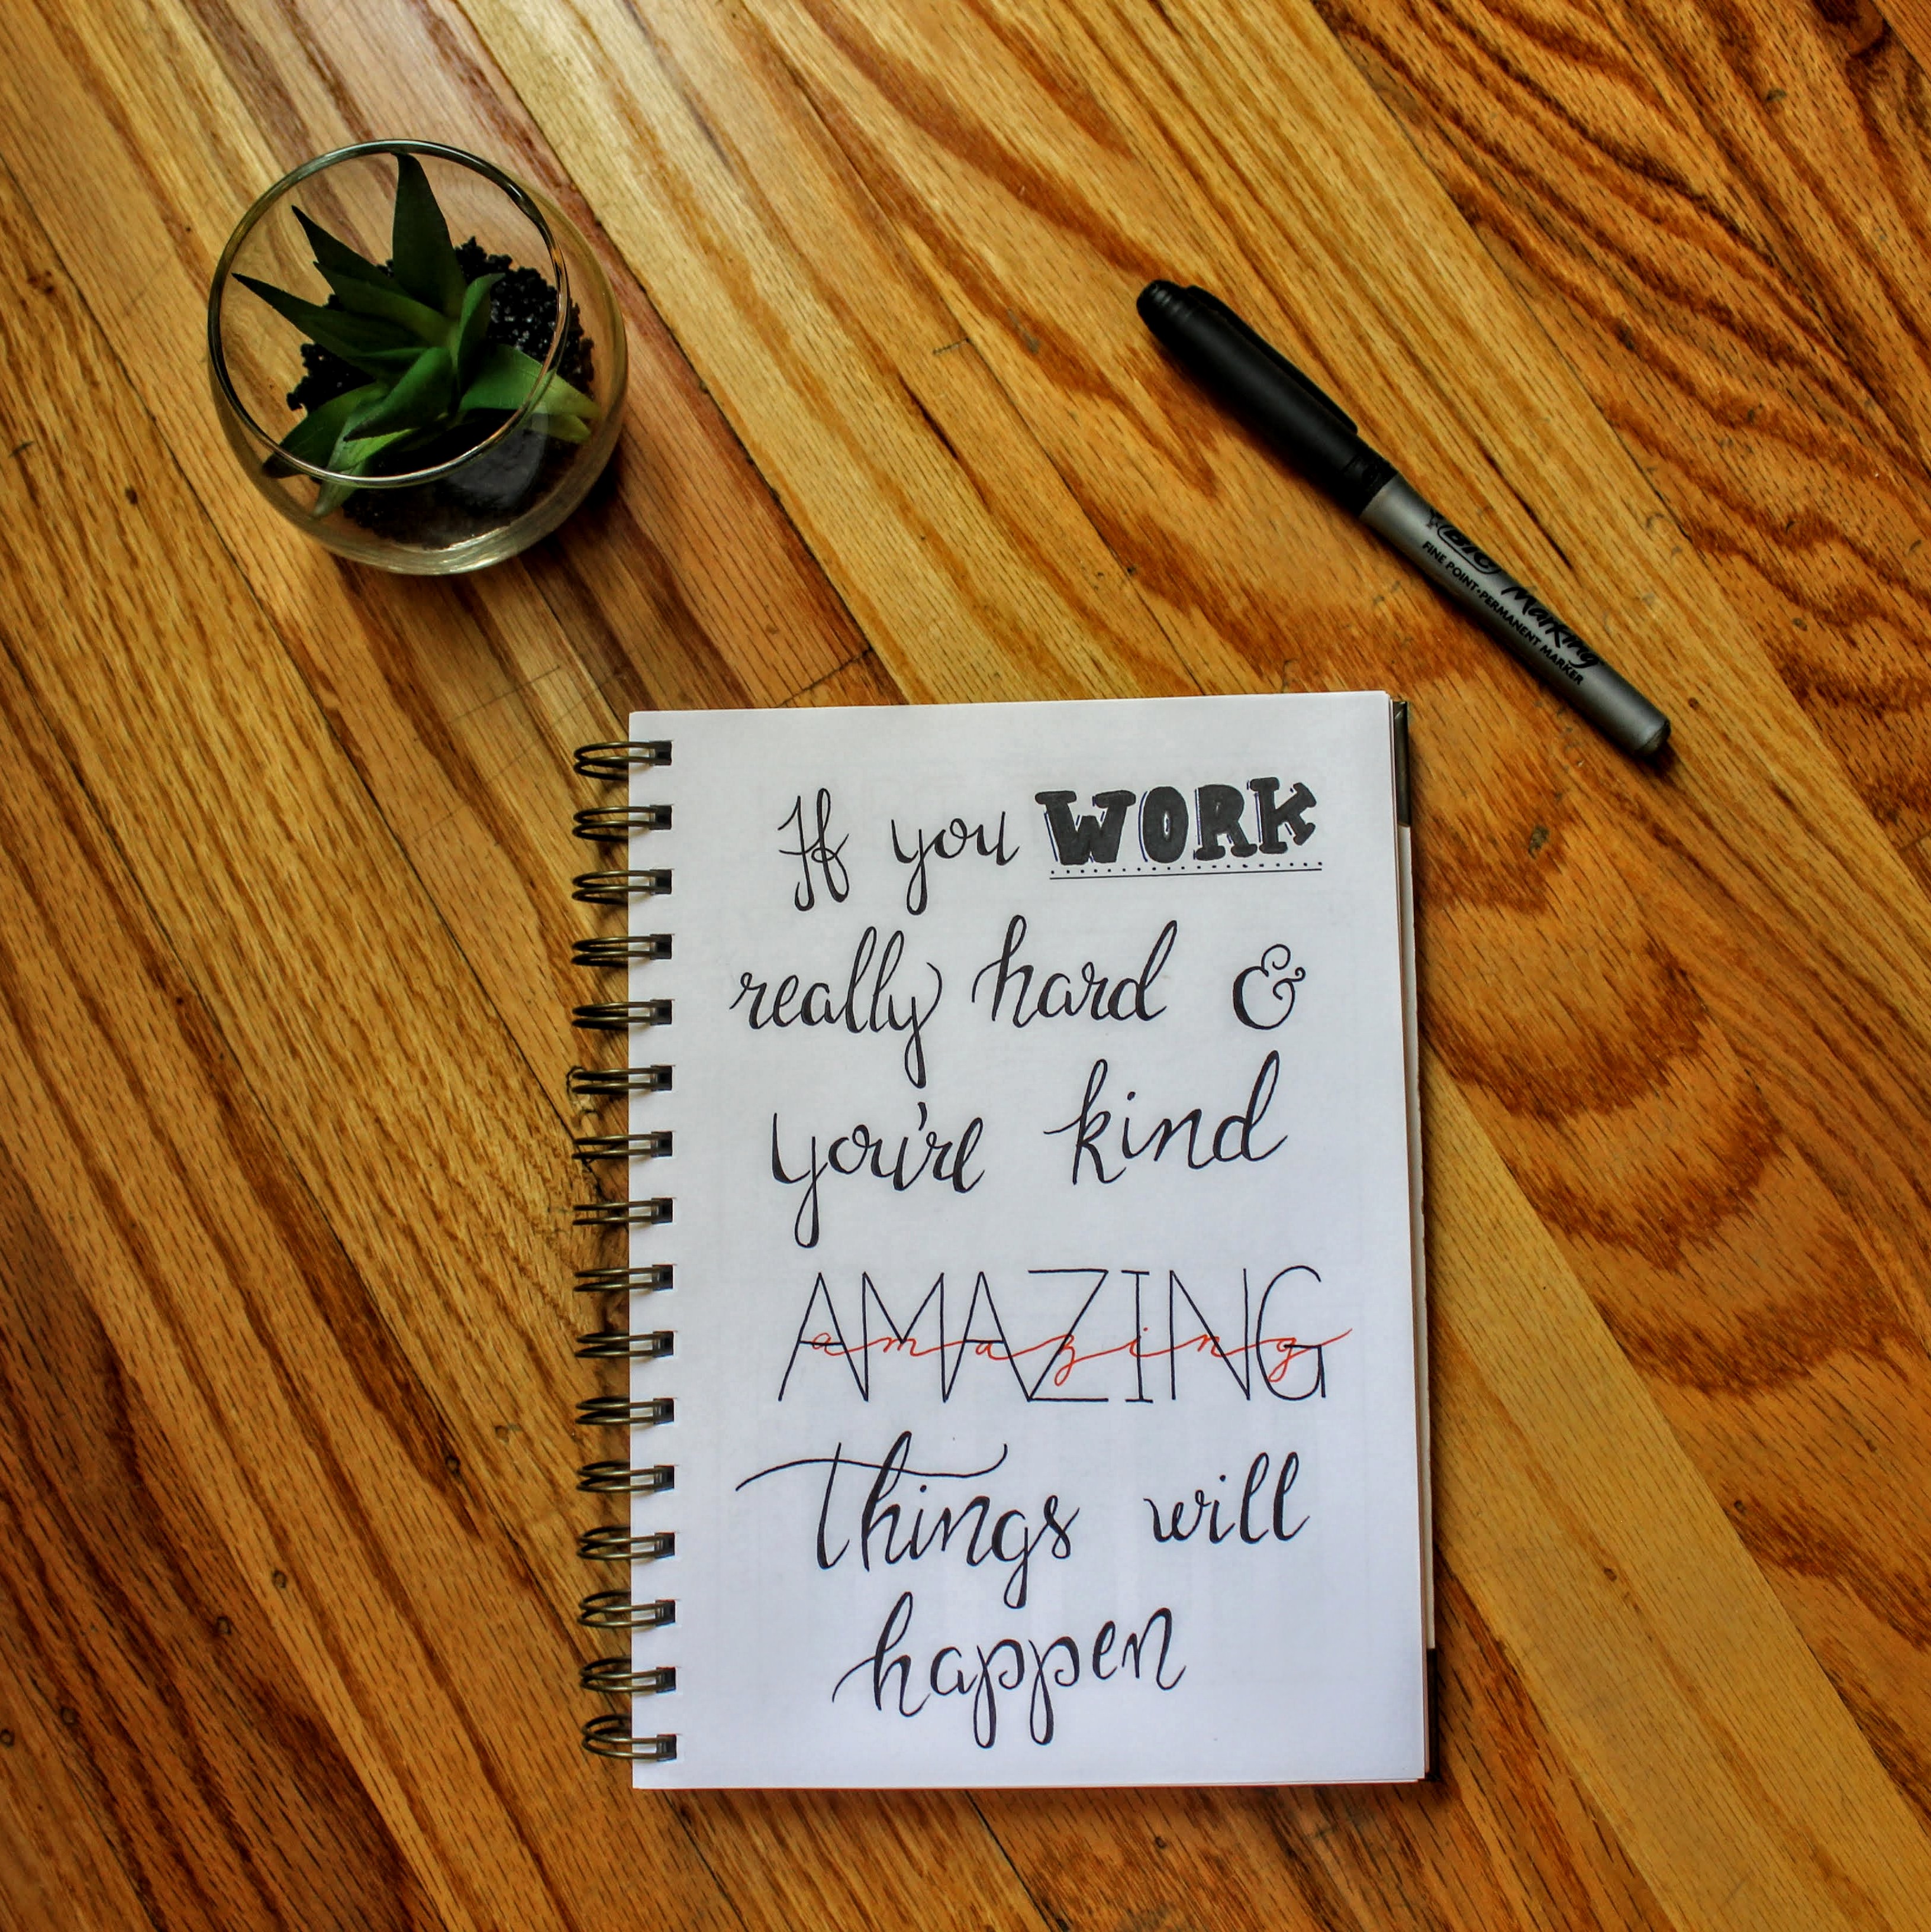 BIC Marking
FINE POINT•PERMANENT MARKER
If you WORK
really hard &
you're kind
AMAZING
amazing
things will
happen